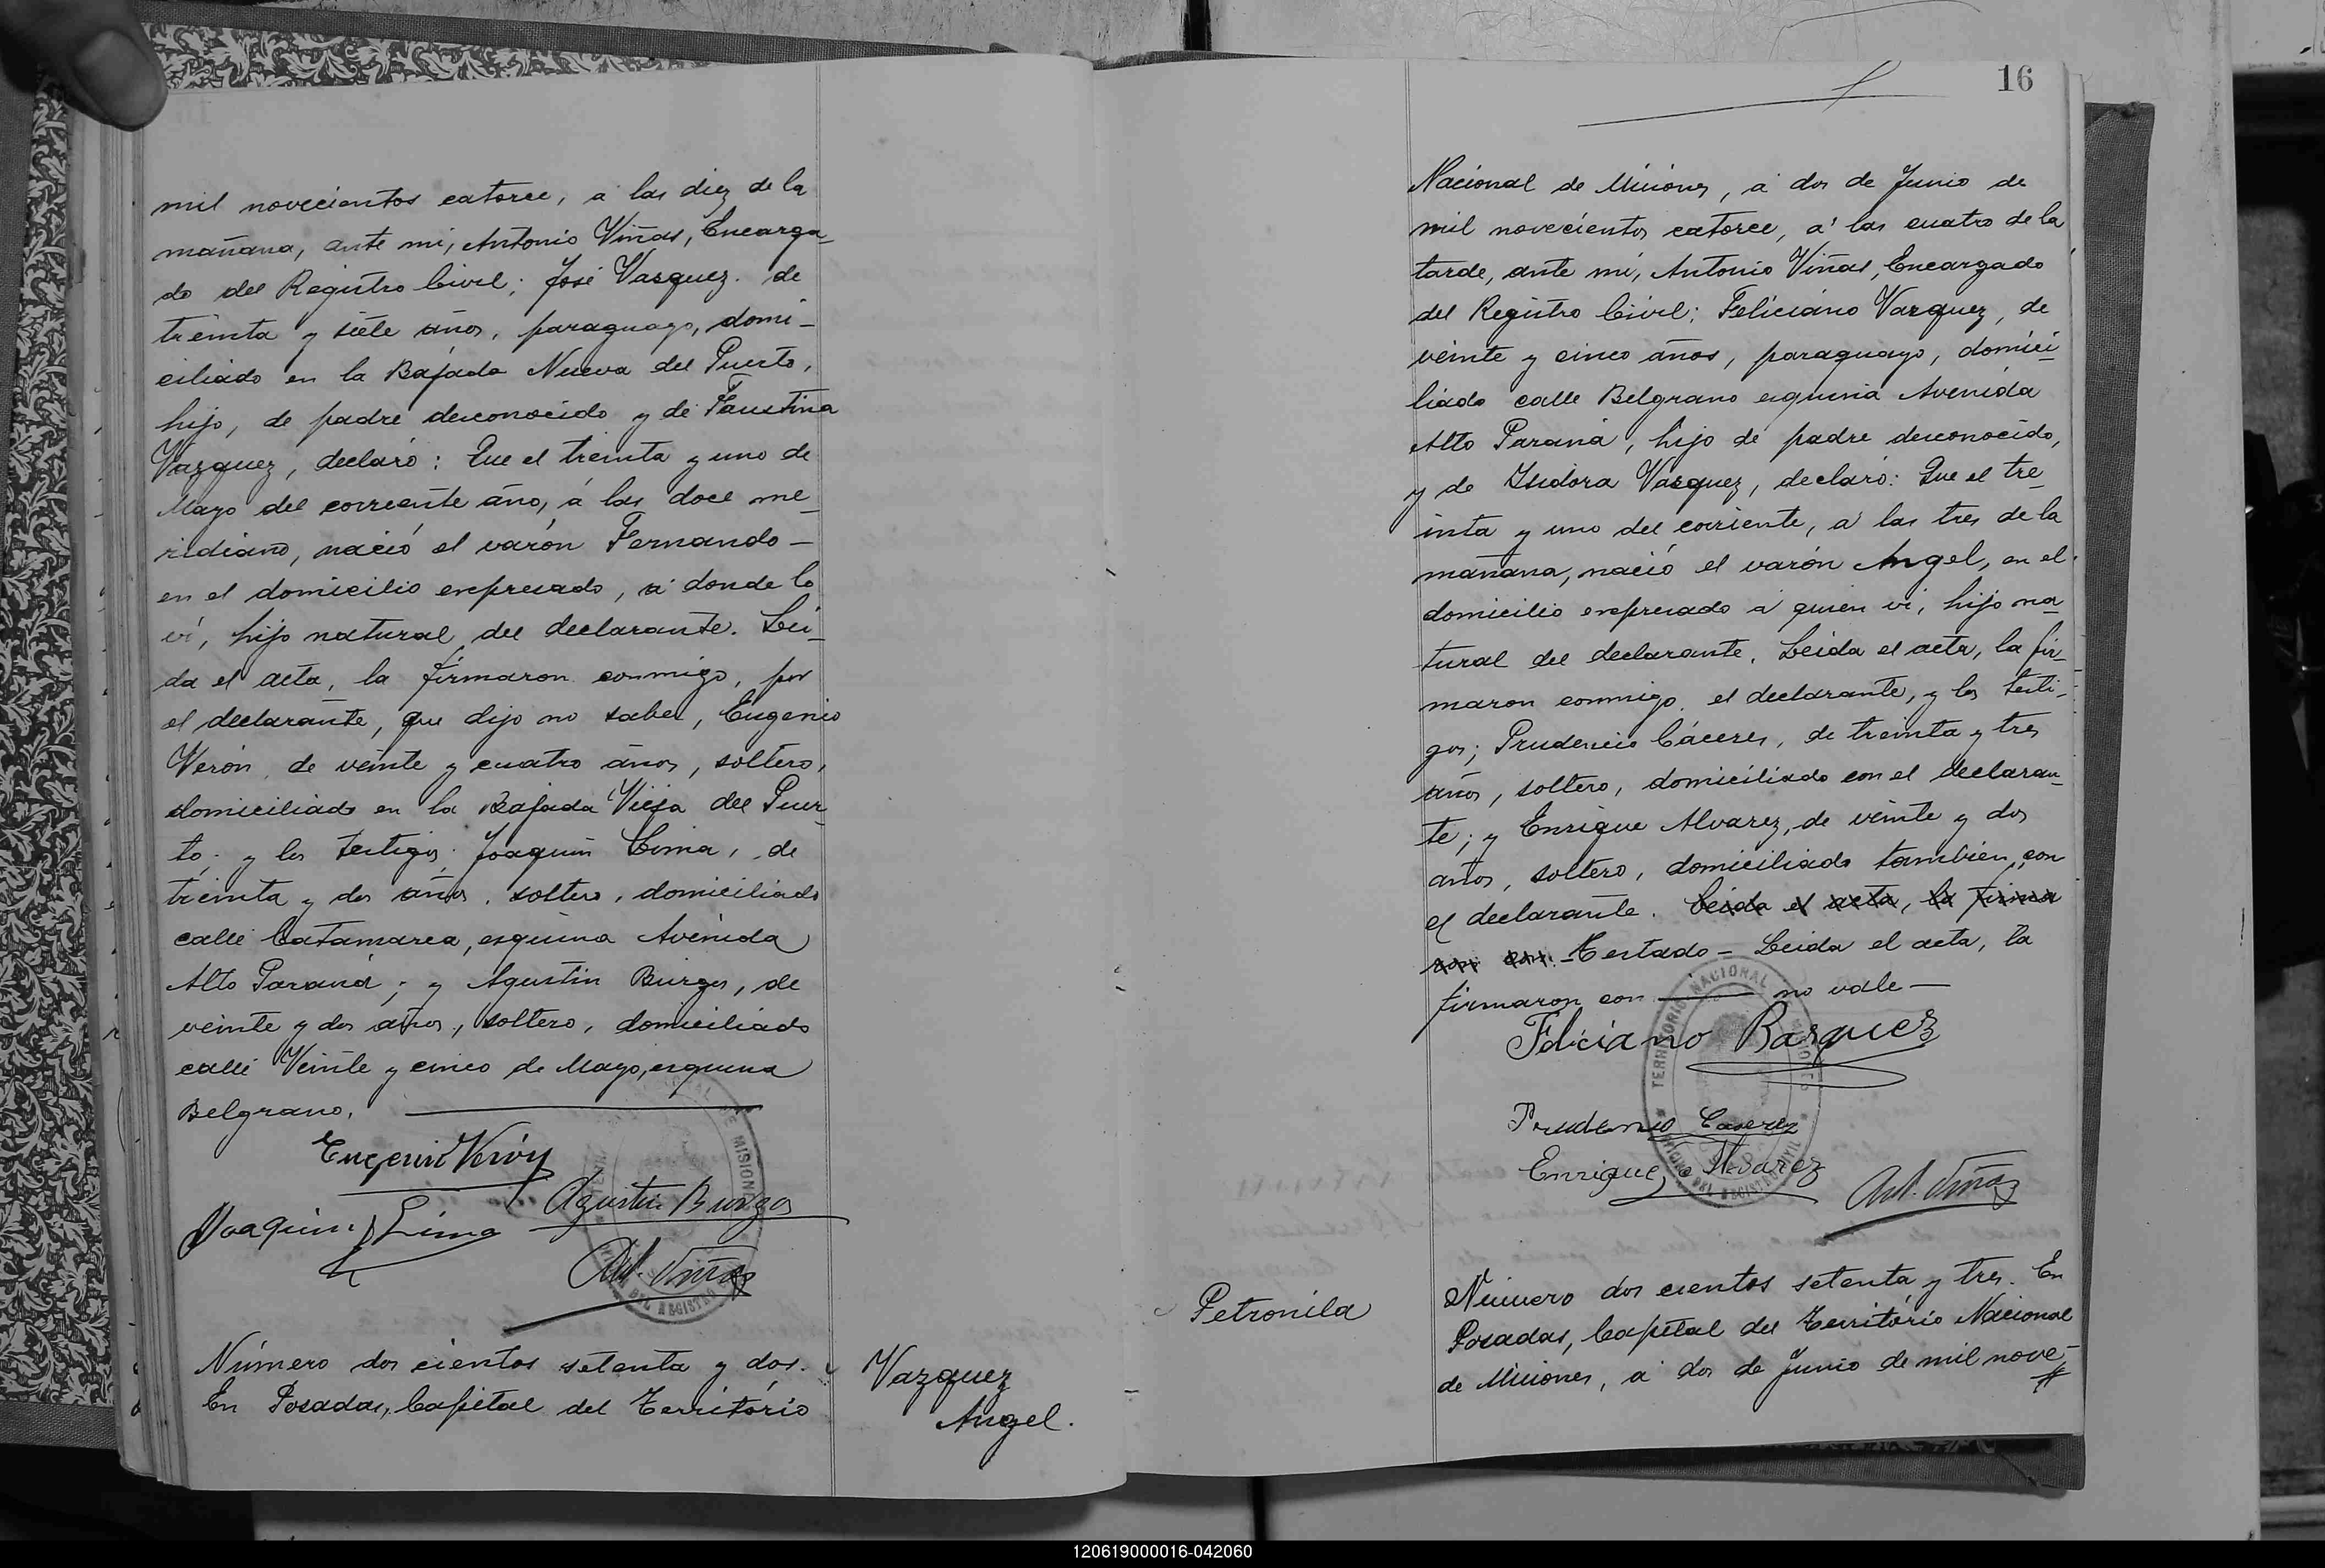 mil novecientos catorce, á las diez de la
mañana, ante mí, Antonio Viñas, Encarga-
do del Registro Civil; José Vasquez. de
treinta y siete años, paraguayo, domi-
ciliado en la Bajada Nueva del Puerto,
hijo, de padre desconocido y de Faustina
Vazquez, declaró: Que el treinta y uno de
Mayo del corriente año, á las doce me-
ridiano, nació el varón Fernando-
en el domicilio expresado, á donde lo
ví, hijo natural del declarante. Leí-
da el acta, la firmaron conmigo, por
el declarante, que dijo no saber, Eugenio
Verón, de veinte y cuatro años, soltero,
domiciliado en la Bajada Vieja del Puer-
to; y los testigos; Joaquin Lima, de
treinta y dos años, soltero, domiciliado
calle Catamarca, esquina Avenida
Alto Paraná; y Agustin Burgos, de
veinte y dos años, soltero, domiciliado
calle Veinte y cinco de Mayo, esquina
Belgrano.
Eugenio Verón
Joaquin Lima
Agustin Burgos
Ant. Viñas
Número dos cientos setenta y dos.
En Posadas, Capital del Territorio
Vazquez
Angel.
16
Nacional de Misiones, á dos de Junio de
mil novecientos catorce, á las cuatro de la
tarde, ante mí, Antonio Viñas, Encargado
del Registro Civil; Feliciano Vazquez, de
veinte y cinco años, paraguayo, domici-
liado calle Belgrano esquina Avenida
Alto Paraná, hijo de padre desconocido,
y de Isidora Vasquez, declaró: Que el tre-
inta y uno del corriente, á las tres de la
mañana, nació el varón Angel, en el
domicilio expresado á quien ví, hijo na-
tural del declarante. Leida el acta, la fir-
maron conmigo, el declarante, y los testi-
gos; Prudencio Cáceres, de treinta y tres
años, soltero, domiciliado con el declaran-
te; y Enrique Alvarez, de veinte y dos
años, soltero, domiciliado tambien, con
el declarante. Leida el acta, la firma
ron con. -Testado- Leida el acta, la
firmaron con — no vale—
Feliciano Basquez
Prudencio Caserez
Enrique Alvarez
Ant. Viñas
TERRITORIO NACIONAL DE MISIONES
DEL REGISTRO CIVIL
Petronila
Número dos cientos setenta y tres. En
Posadas, Capital del Territorio Nacional
de Misiones, á dos de Junio de mil nove-
120619000016-042060